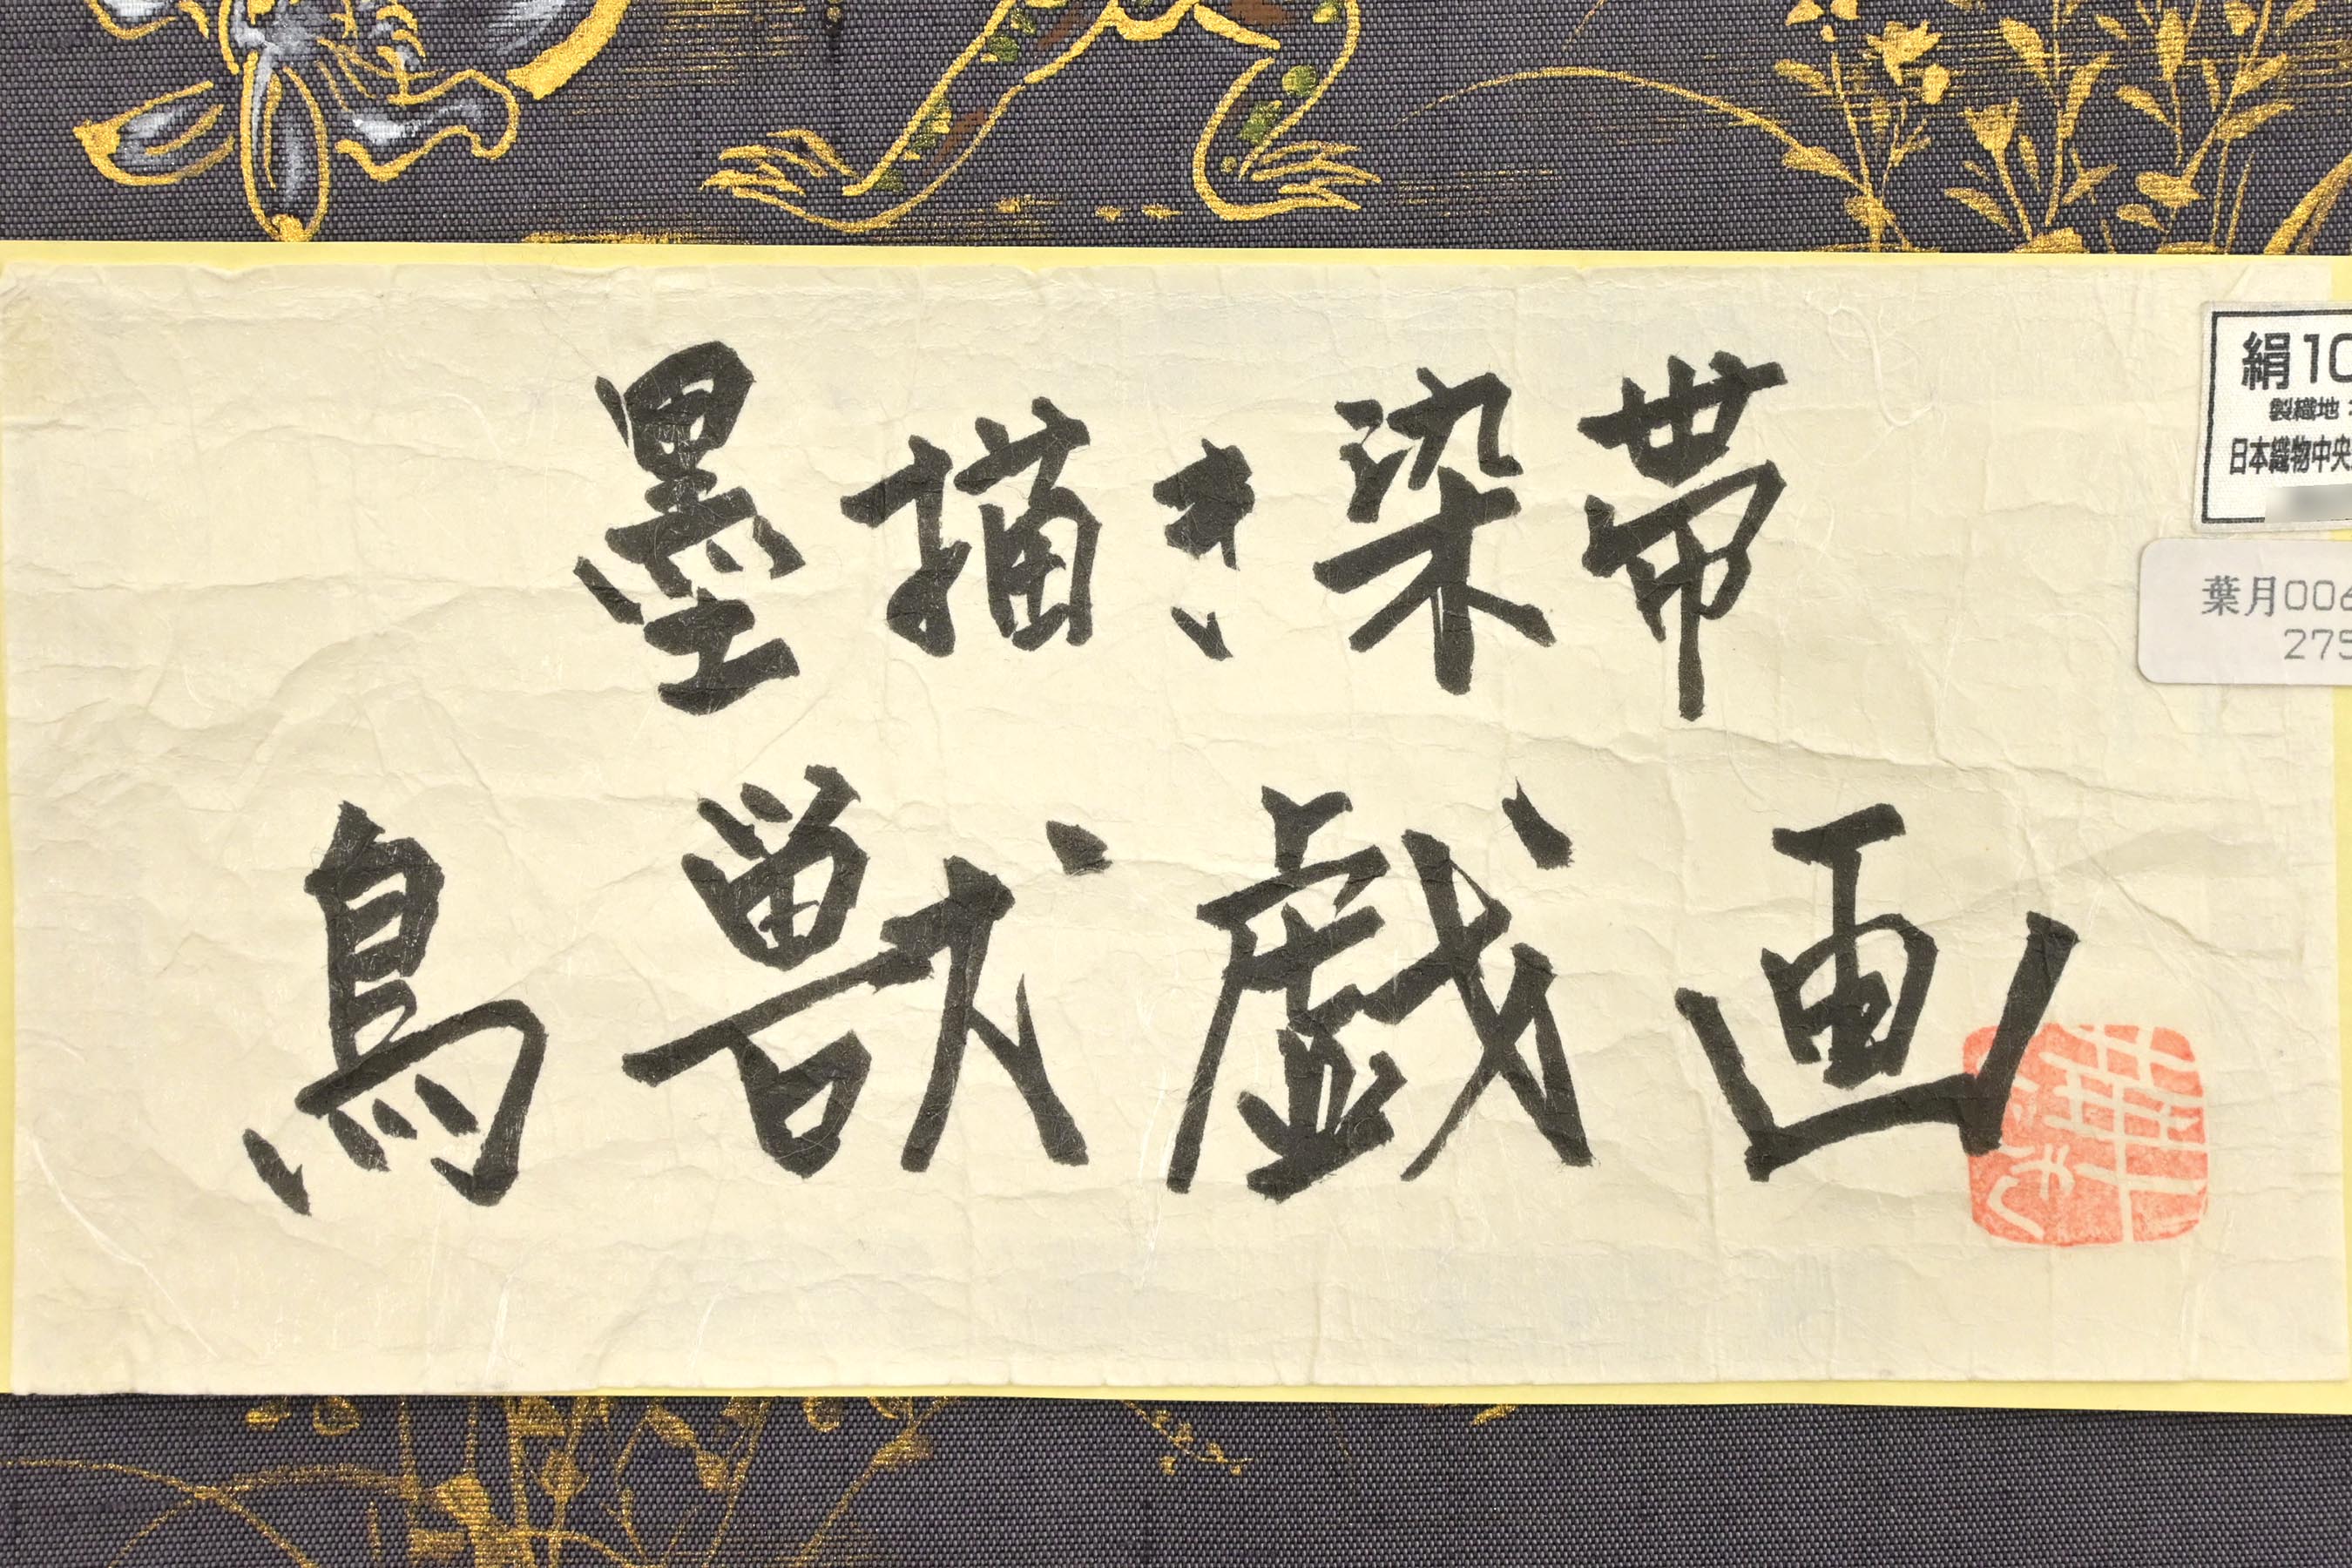 墨描き染帯
鳥獣戯画
絹10
製織地:
日本織物中央
葉月006
275